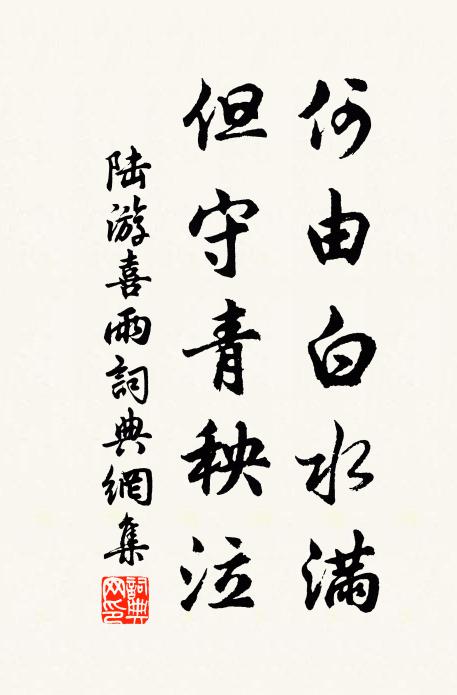 何由白水满
但守青秧泣
陆游喜雨詞典網集
詞典网印